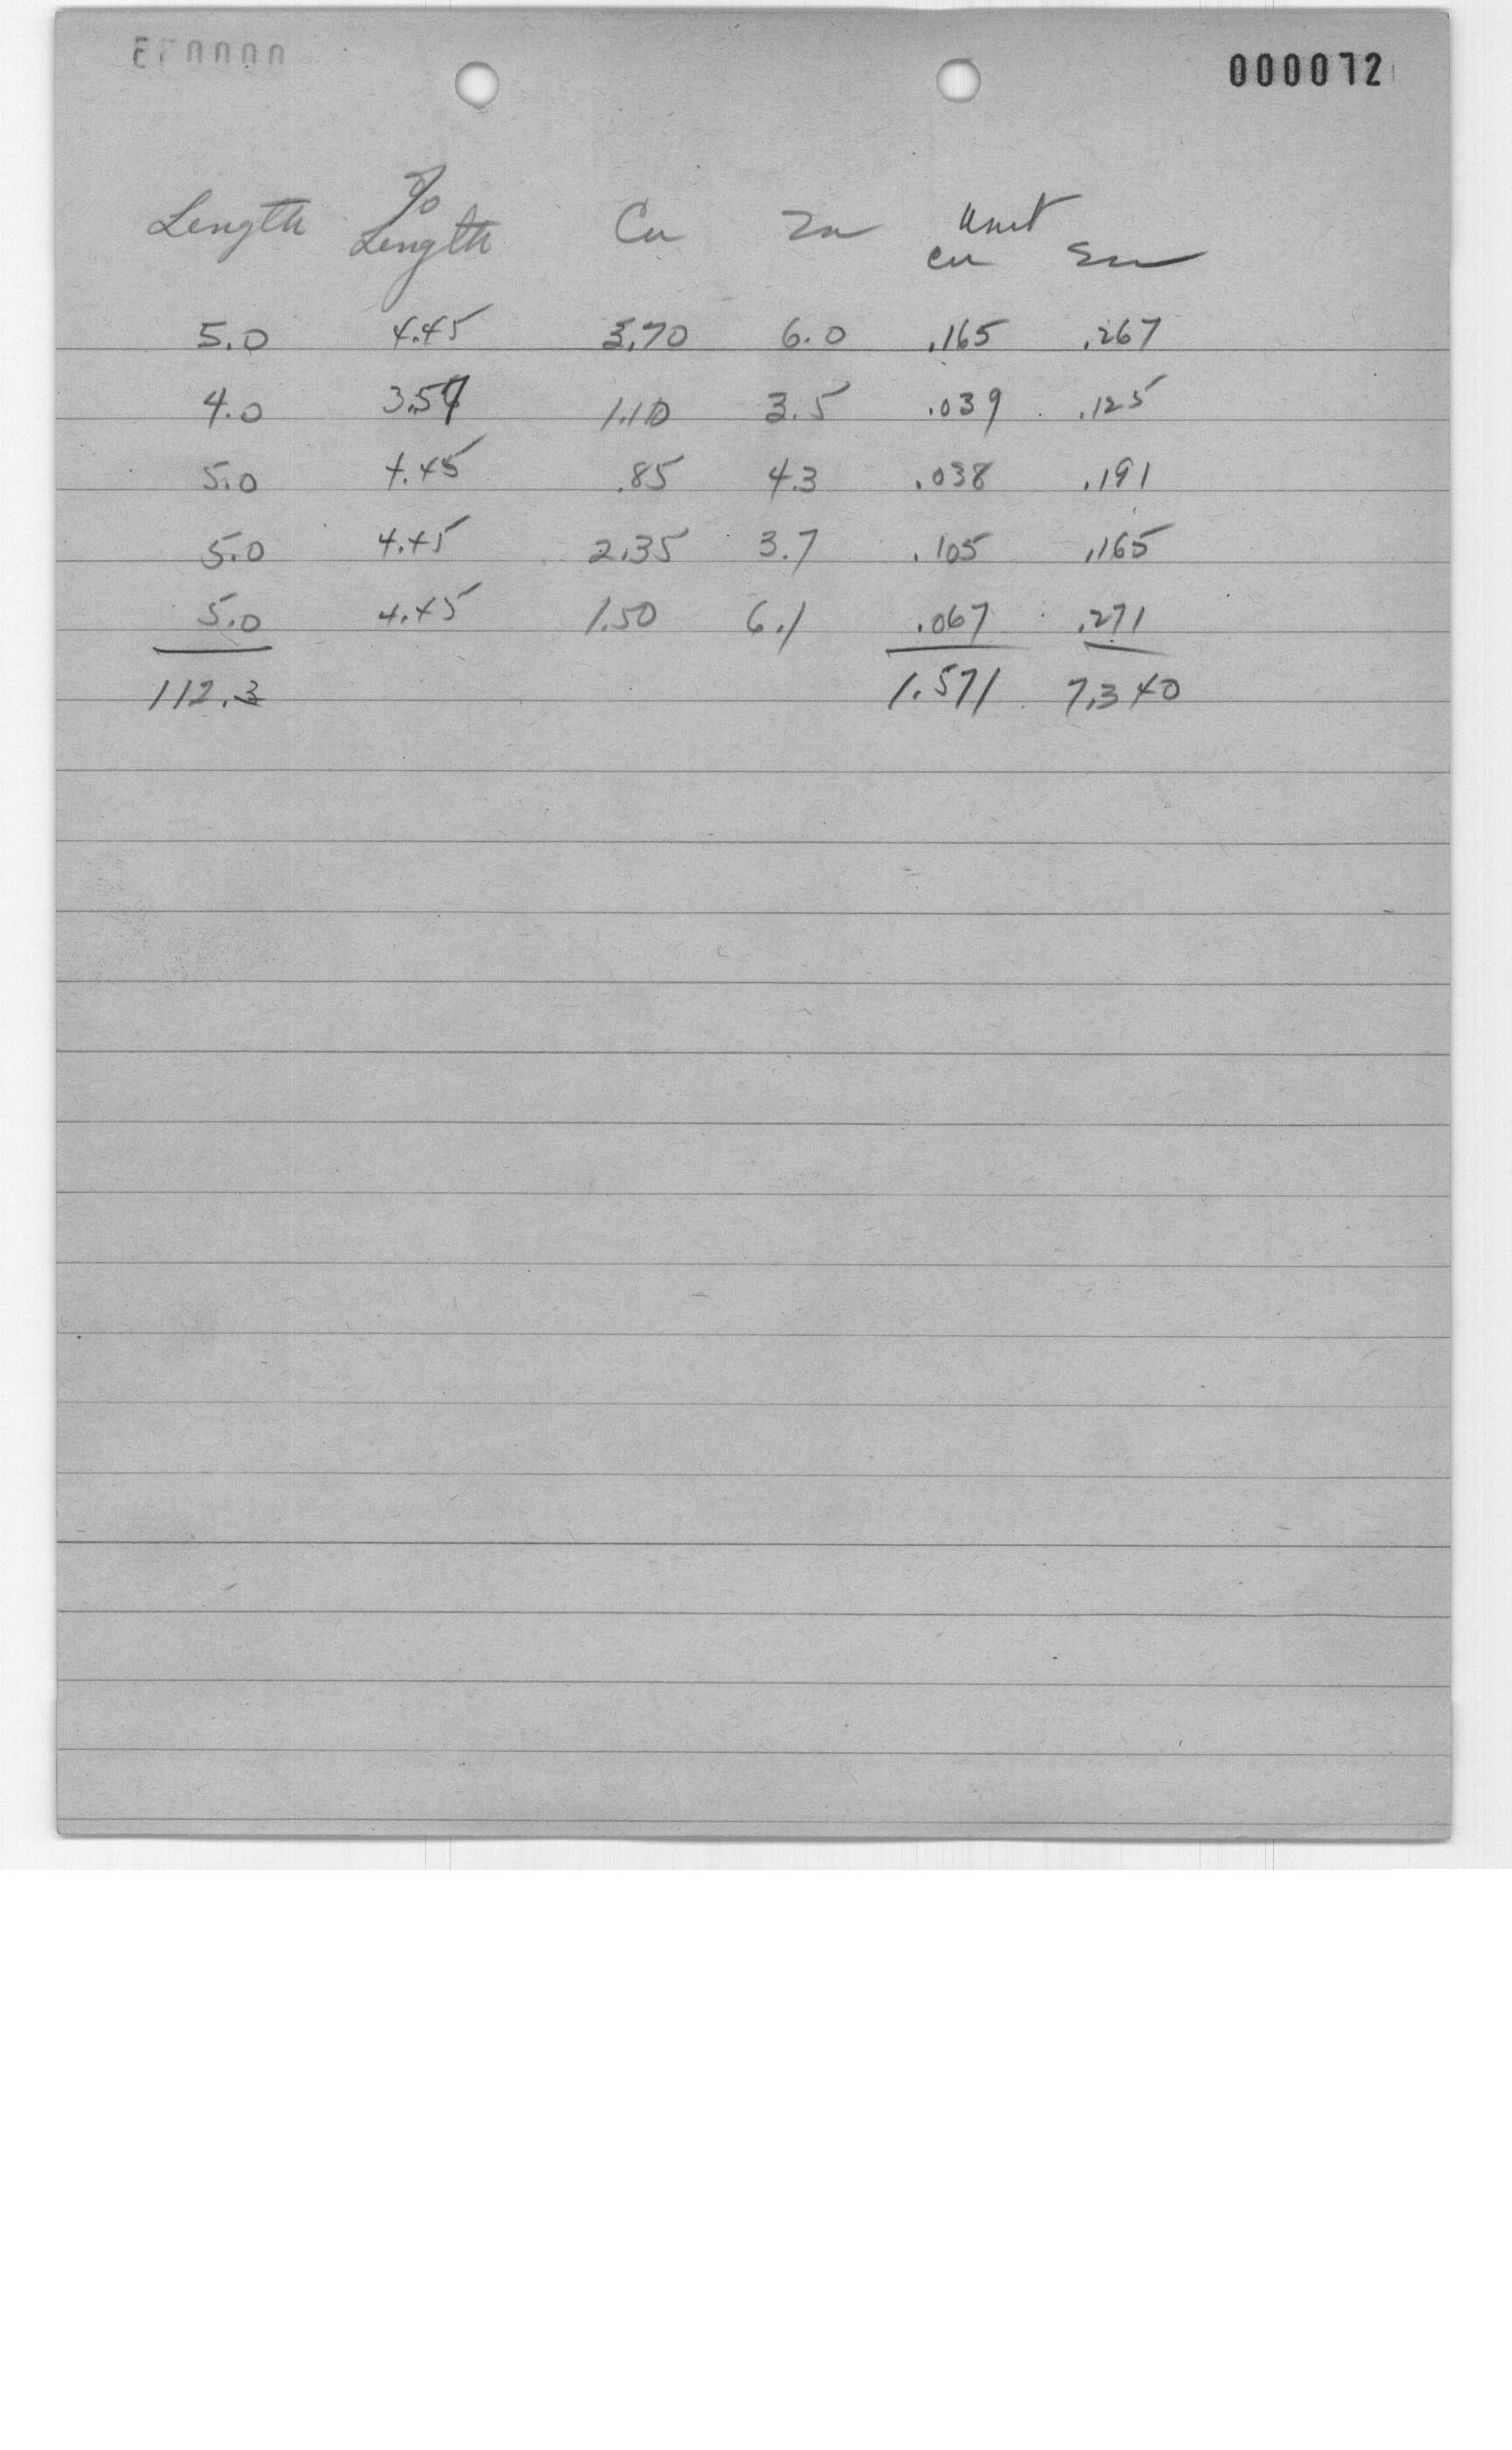 000072
Length % Length Cu Zn Unit Cu Zn
5.0 4.45 3.70 6.0 .165 .267
4.0 3.57 1.10 3.5 .039 .125
5.0 4.45 .85 4.3 .038 .191
5.0 4.45 2.35 3.7 .105 .165
5.0 4.45 1.50 6.1 .067 .271
112.3 1.571 7.340